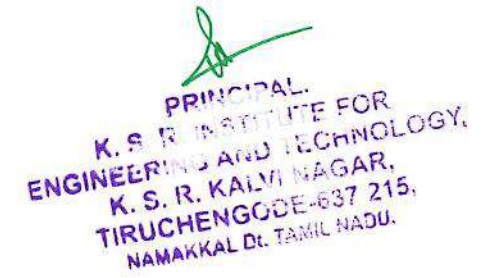 PRINCIPAL.
K. S. R. INSTITUTE FOR
ENGINEERING AND TECHNOLOGY,
K. S. R. KALVI NAGAR,
TIRUCHENGODE-637 215,
NAMAKKAL Dt. TAMIL NADU.